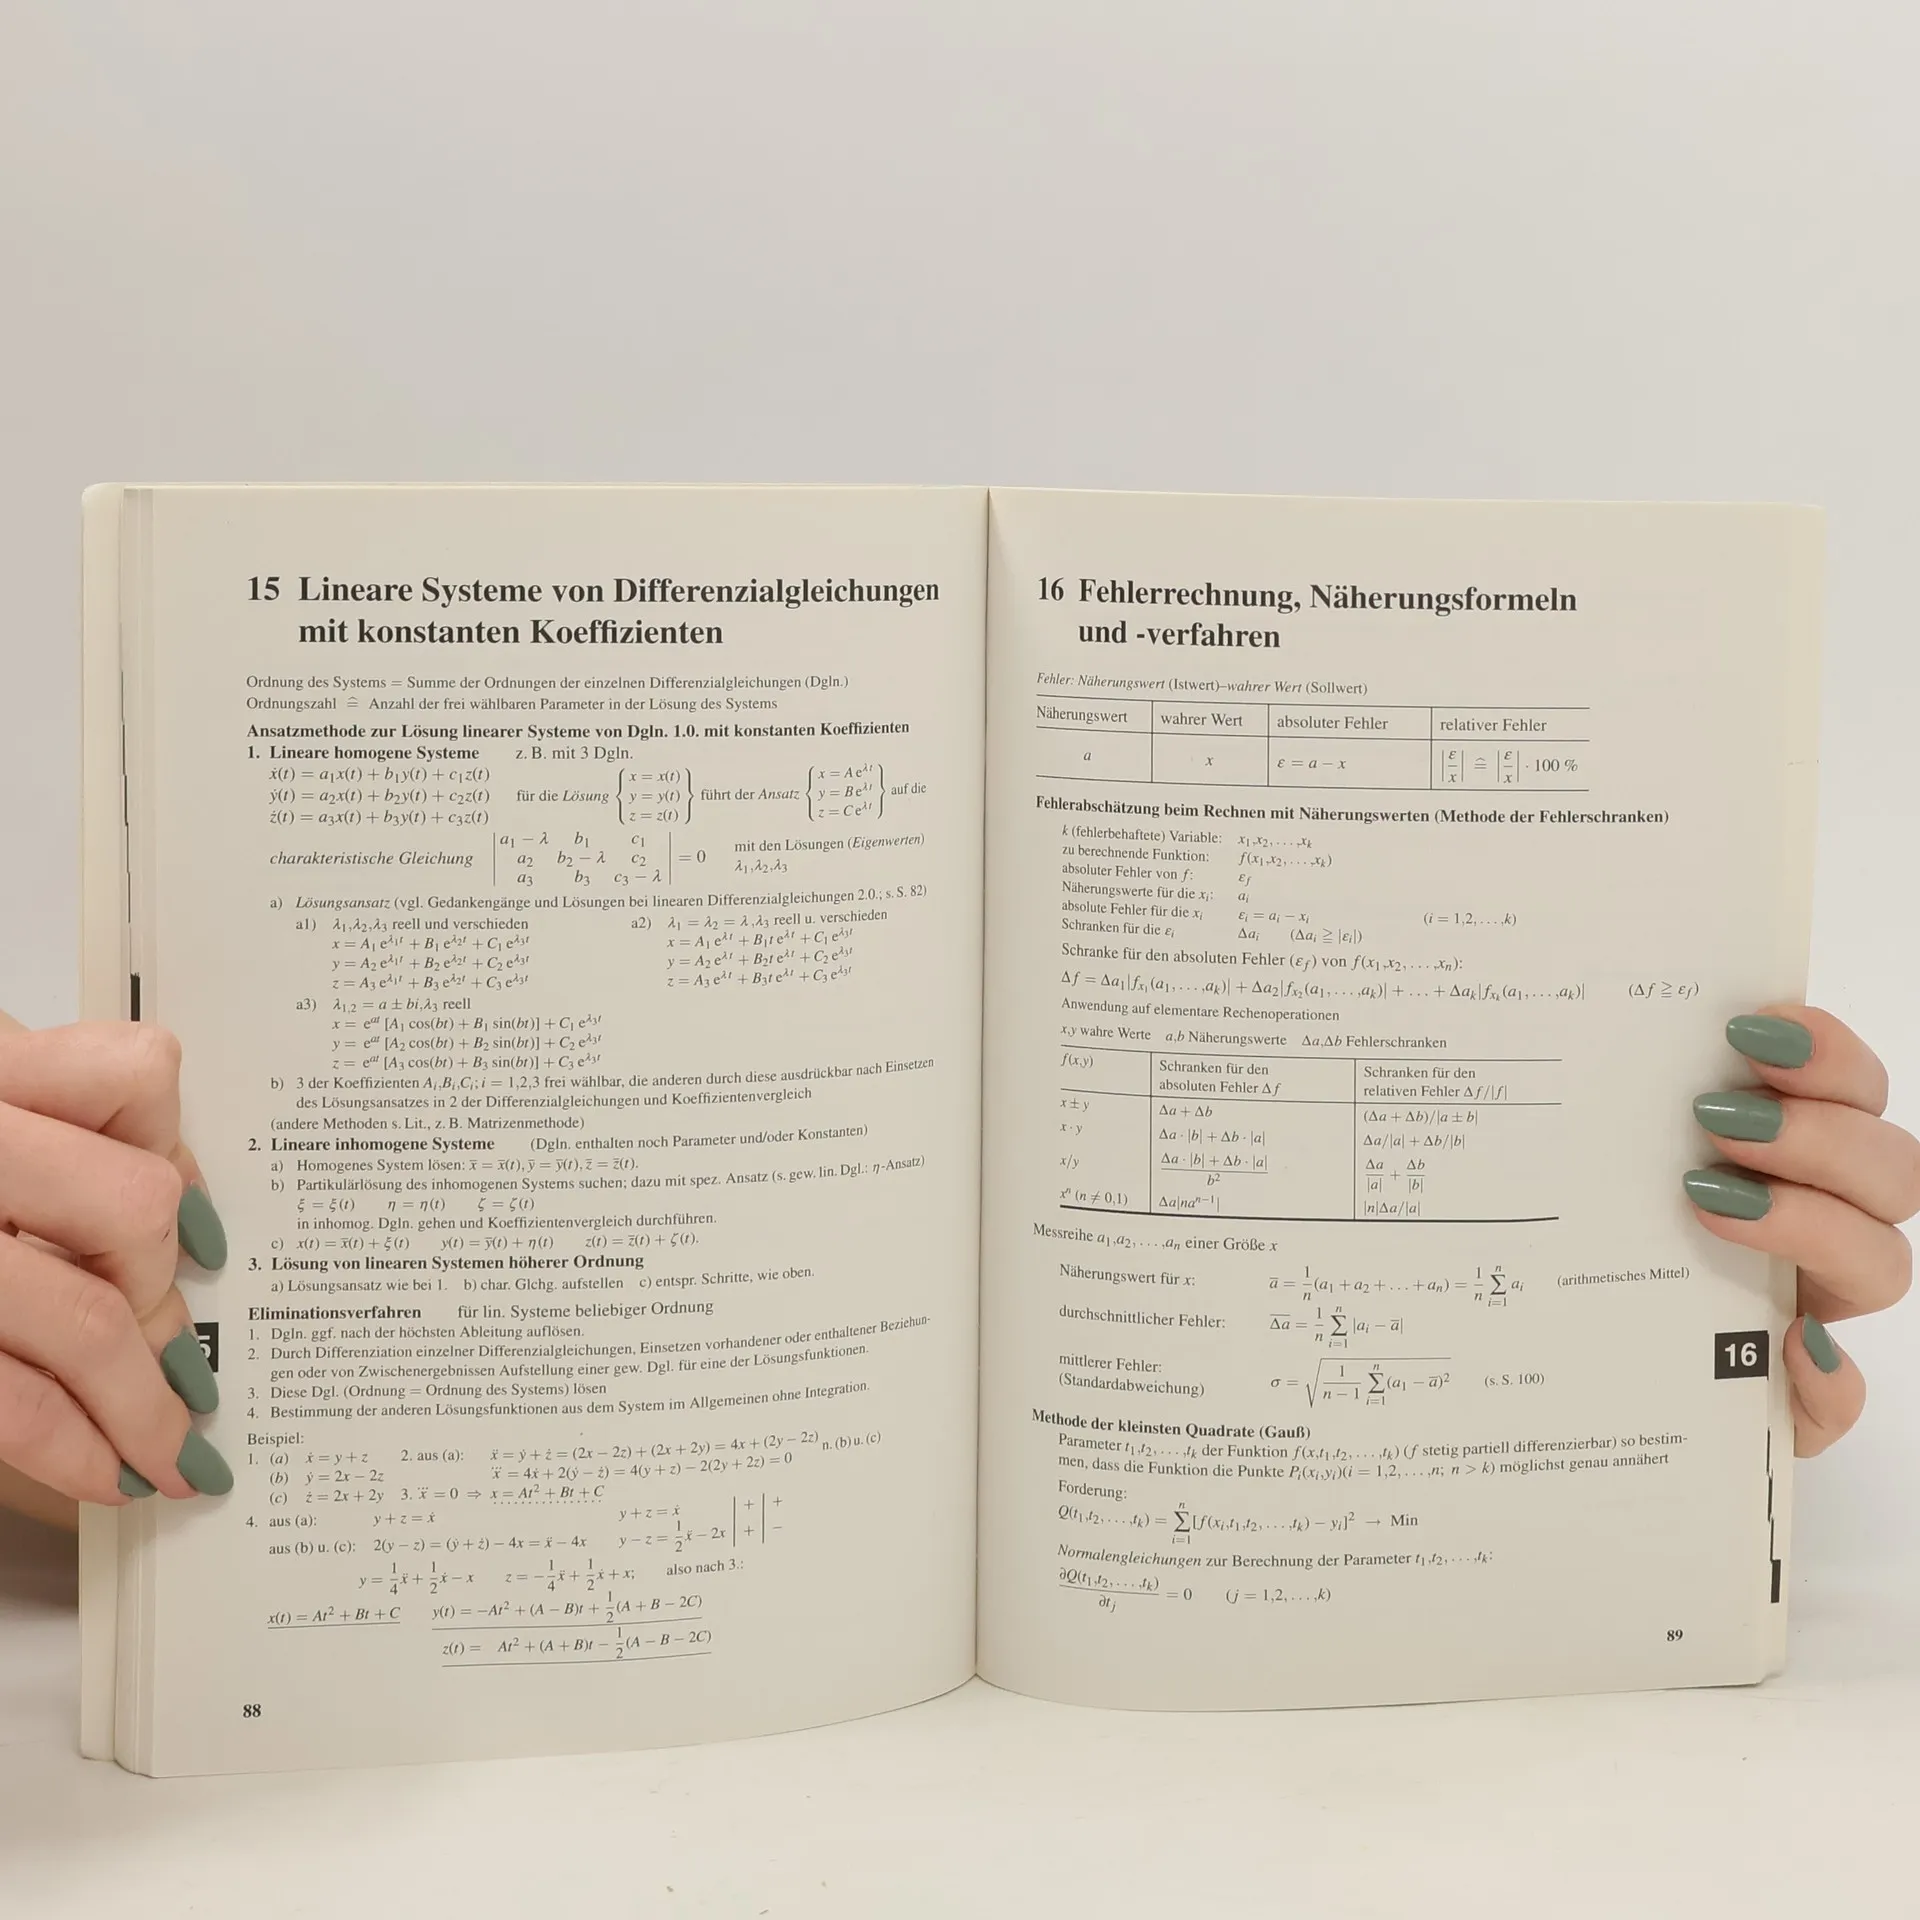 15 Lineare Systeme von Differenzialgleichungen
mit konstanten Koeffizienten
Ordnung des Systems = Summe der Ordnungen der einzelnen Differenzialgleichungen (Dgln.)
Ordnungszahl ≙ Anzahl der frei wählbaren Parameter in der Lösung des Systems
Ansatzmethode zur Lösung linearer Systeme von Dgln. 1.0. mit konstanten Koeffizienten
1. Lineare homogene Systeme z. B. mit 3 Dgln.
ẋ(t) = a₁x(t) + b₁y(t) + c₁z(t) { x = x(t) } { x = A e^{λt} }
ẏ(t) = a₂x(t) + b₂y(t) + c₂z(t) für die Lösung { y = y(t) } führt der Ansatz { y = B e^{λt} } auf die
ż(t) = a₃x(t) + b₃y(t) + c₃z(t) { z = z(t) } { z = C e^{λt} }
| a₁ − λ b₁ c₁ | mit den Lösungen (Eigenwerten)
charakteristische Gleichung | a₂ b₂ − λ c₂ | = 0 λ₁,λ₂,λ₃
| a₃ b₃ c₃ − λ |
a) Lösungsansatz (vgl. Gedankengänge und Lösungen bei linearen Differenzialgleichungen 2.0.; s. S. 82)
a1) λ₁,λ₂,λ₃ reell und verschieden a2) λ₁ = λ₂ = λ,λ₃ reell u. verschieden
x = A₁ e^{λ₁t} + B₁ e^{λ₂t} + C₁ e^{λ₃t} x = A₁ e^{λt} + B₁t e^{λt} + C₁ e^{λ₃t}
y = A₂ e^{λ₁t} + B₂ e^{λ₂t} + C₂ e^{λ₃t} y = A₂ e^{λt} + B₂t e^{λt} + C₂ e^{λ₃t}
z = A₃ e^{λ₁t} + B₃ e^{λ₂t} + C₃ e^{λ₃t} z = A₃ e^{λt} + B₃t e^{λt} + C₃ e^{λ₃t}
a3) λ₁,₂ = a ± bi,λ₃ reell
x = e^{at} [A₁ cos(bt) + B₁ sin(bt)] + C₁ e^{λ₃t}
y = e^{at} [A₂ cos(bt) + B₂ sin(bt)] + C₂ e^{λ₃t}
z = e^{at} [A₃ cos(bt) + B₃ sin(bt)] + C₃ e^{λ₃t}
b) 3 der Koeffizienten Aᵢ,Bᵢ,Cᵢ; i = 1,2,3 frei wählbar, die anderen durch diese ausdrückbar nach Einsetzen
des Lösungsansatzes in 2 der Differenzialgleichungen und Koeffizientenvergleich
(andere Methoden s. Lit., z. B. Matrizenmethode)
2. Lineare inhomogene Systeme (Dgln. enthalten noch Parameter und/oder Konstanten)
a) Homogenes System lösen: x̄ = x̄(t), ȳ = ȳ(t), z̄ = z̄(t).
b) Partikulärlösung des inhomogenen Systems suchen; dazu mit spez. Ansatz (s. gew. lin. Dgl.: η-Ansatz)
ξ = ξ(t) η = η(t) ζ = ζ(t)
in inhomog. Dgln. gehen und Koeffizientenvergleich durchführen.
c) x(t) = x̄(t) + ξ(t) y(t) = ȳ(t) + η(t) z(t) = z̄(t) + ζ(t).
3. Lösung von linearen Systemen höherer Ordnung
a) Lösungsansatz wie bei 1. b) char. Glchg. aufstellen c) entspr. Schritte, wie oben.
Eliminationsverfahren für lin. Systeme beliebiger Ordnung
1. Dgln. ggf. nach der höchsten Ableitung auflösen.
2. Durch Differenziation einzelner Differenzialgleichungen, Einsetzen vorhandener oder enthaltener Beziehun-
gen oder von Zwischenergebnissen Aufstellung einer gew. Dgl. für eine der Lösungsfunktionen.
3. Diese Dgl. (Ordnung = Ordnung des Systems) lösen
4. Bestimmung der anderen Lösungsfunktionen aus dem System im Allgemeinen ohne Integration.
Beispiel:
1. (a) ẋ = y + z 2. aus (a): ẍ = ẏ + ż = (2x − 2z) + (2x + 2y) = 4x + (2y − 2z) n. (b) u. (c)
(b) ẏ = 2x − 2z x⃛ = 4ẋ + 2(ẏ − ż) = 4(y + z) − 2(2y + 2z) = 0
(c) ż = 2x + 2y 3. x⃛ = 0 ⇒ x = At² + Bt + C
4. aus (a): y + z = ẋ y + z = ẋ | + | +
aus (b) u. (c): 2(y − z) = (ẏ + ż) − 4x = ẍ − 4x y − z = 1/2 ẍ − 2x | + | −
y = 1/4 ẍ + 1/2 ẋ − x z = −1/4 ẍ + 1/2 ẋ + x; also nach 3.:
x(t) = At² + Bt + C y(t) = −At² + (A − B)t + 1/2 (A + B − 2C)
z(t) = At² + (A + B)t − 1/2 (A − B − 2C)
88
16 Fehlerrechnung, Näherungsformeln
und -verfahren
Fehler: Näherungswert (Istwert)–wahrer Wert (Sollwert)
Näherungswert wahrer Wert absoluter Fehler relativer Fehler
a x ε = a − x |ε/x| ≙ |ε/x| · 100 %
Fehlerabschätzung beim Rechnen mit Näherungswerten (Methode der Fehlerschranken)
k (fehlerbehaftete) Variable: x₁,x₂,...,xₖ
zu berechnende Funktion: f(x₁,x₂,...,xₖ)
absoluter Fehler von f: ε_f
Näherungswerte für die xᵢ: aᵢ
absolute Fehler für die xᵢ εᵢ = aᵢ − xᵢ (i = 1,2,...,k)
Schranken für die εᵢ Δaᵢ (Δaᵢ ≧ |εᵢ|)
Schranke für den absoluten Fehler (ε_f) von f(x₁,x₂,...,xₙ):
Δf = Δa₁|f_{x₁}(a₁,...,aₖ)| + Δa₂|f_{x₂}(a₁,...,aₖ)| + ... + Δaₖ|f_{xₖ}(a₁,...,aₖ)| (Δf ≧ ε_f)
Anwendung auf elementare Rechenoperationen
x,y wahre Werte a,b Näherungswerte Δa,Δb Fehlerschranken
f(x,y) Schranken für den Schranken für den
absoluten Fehler Δf relativen Fehler Δf/|f|
x ± y Δa + Δb (Δa + Δb)/|a ± b|
x · y Δa · |b| + Δb · |a| Δa/|a| + Δb/|b|
x/y (Δa · |b| + Δb · |a|)/b² Δa/|a| + Δb/|b|
xⁿ (n ≠ 0,1) Δa|naⁿ⁻¹| |n|Δa/|a|
Messreihe a₁,a₂,...,aₙ einer Größe x
Näherungswert für x: ā = 1/n (a₁ + a₂ + ... + aₙ) = 1/n ∑_{i=1}^{n} aᵢ (arithmetisches Mittel)
durchschnittlicher Fehler: Δa̅ = 1/n ∑_{i=1}^{n} |aᵢ − ā|
mittlerer Fehler:
(Standardabweichung) σ = √(1/(n − 1) ∑_{i=1}^{n} (a₁ − ā)²) (s. S. 100)
16
Methode der kleinsten Quadrate (Gauß)
Parameter t₁,t₂,...,tₖ der Funktion f(x,t₁,t₂,...,tₖ) (f stetig partiell differenzierbar) so bestim-
men, dass die Funktion die Punkte Pᵢ(xᵢ,yᵢ)(i = 1,2,...,n; n > k) möglichst genau annähert
Forderung:
Q(t₁,t₂,...,tₖ) = ∑_{i=1}^{n} [f(xᵢ,t₁,t₂,...,tₖ) − yᵢ]² → Min
Normalengleichungen zur Berechnung der Parameter t₁,t₂,...,tₖ:
∂Q(t₁,t₂,...,tₖ)/∂tⱼ = 0 (j = 1,2,...,k)
89